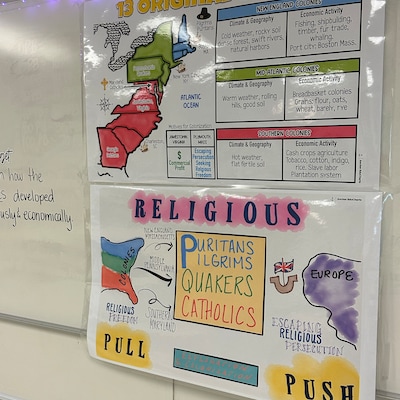 13 ORIGINAL
NEW ENGLAND COLONIES
Climate & Geography
Economic Activity
Cold weather, rocky soil
forest, swift rivers,
natural harbors
Fishing, shipbuilding,
timber, fur trade,
whaling.
Port city: Boston Mass.
MID ATLANTIC COLONIES
Climate & Geography
Economic Activity
Warm weather, rolling
hills, good soil
Breadbasket colonies
Grains: flour, oats,
wheat, barely, rye
ATLANTIC
OCEAN
SOUTHERN COLONIES
Climate & Geography
Economic Activity
Hot weather,
flat fertile soil
Cash crops agriculture
Tobacco, cotton, indigo,
rice. Slave labor
Plantation system
JAMESTOWN
VIRGINIA
PLYMOUTH
MASS
$
Commercial
Profit
Escaping
Persecution
Seeking
Religious
Freedom
how the
developed
economically.
RELIGIOUS
NEW ENGLAND
MASSACHUSETTS
MIDDLE
PENNSYLVANIA
SOUTHERN
MARYLAND
COLONIES
RELIGIOUS
FREEDOM
PURITANS
PILGRIMS
QUAKERS
CATHOLICS
EUROPE
ESCAPING
RELIGIOUS
PERSECUTION
PULL
PUSH